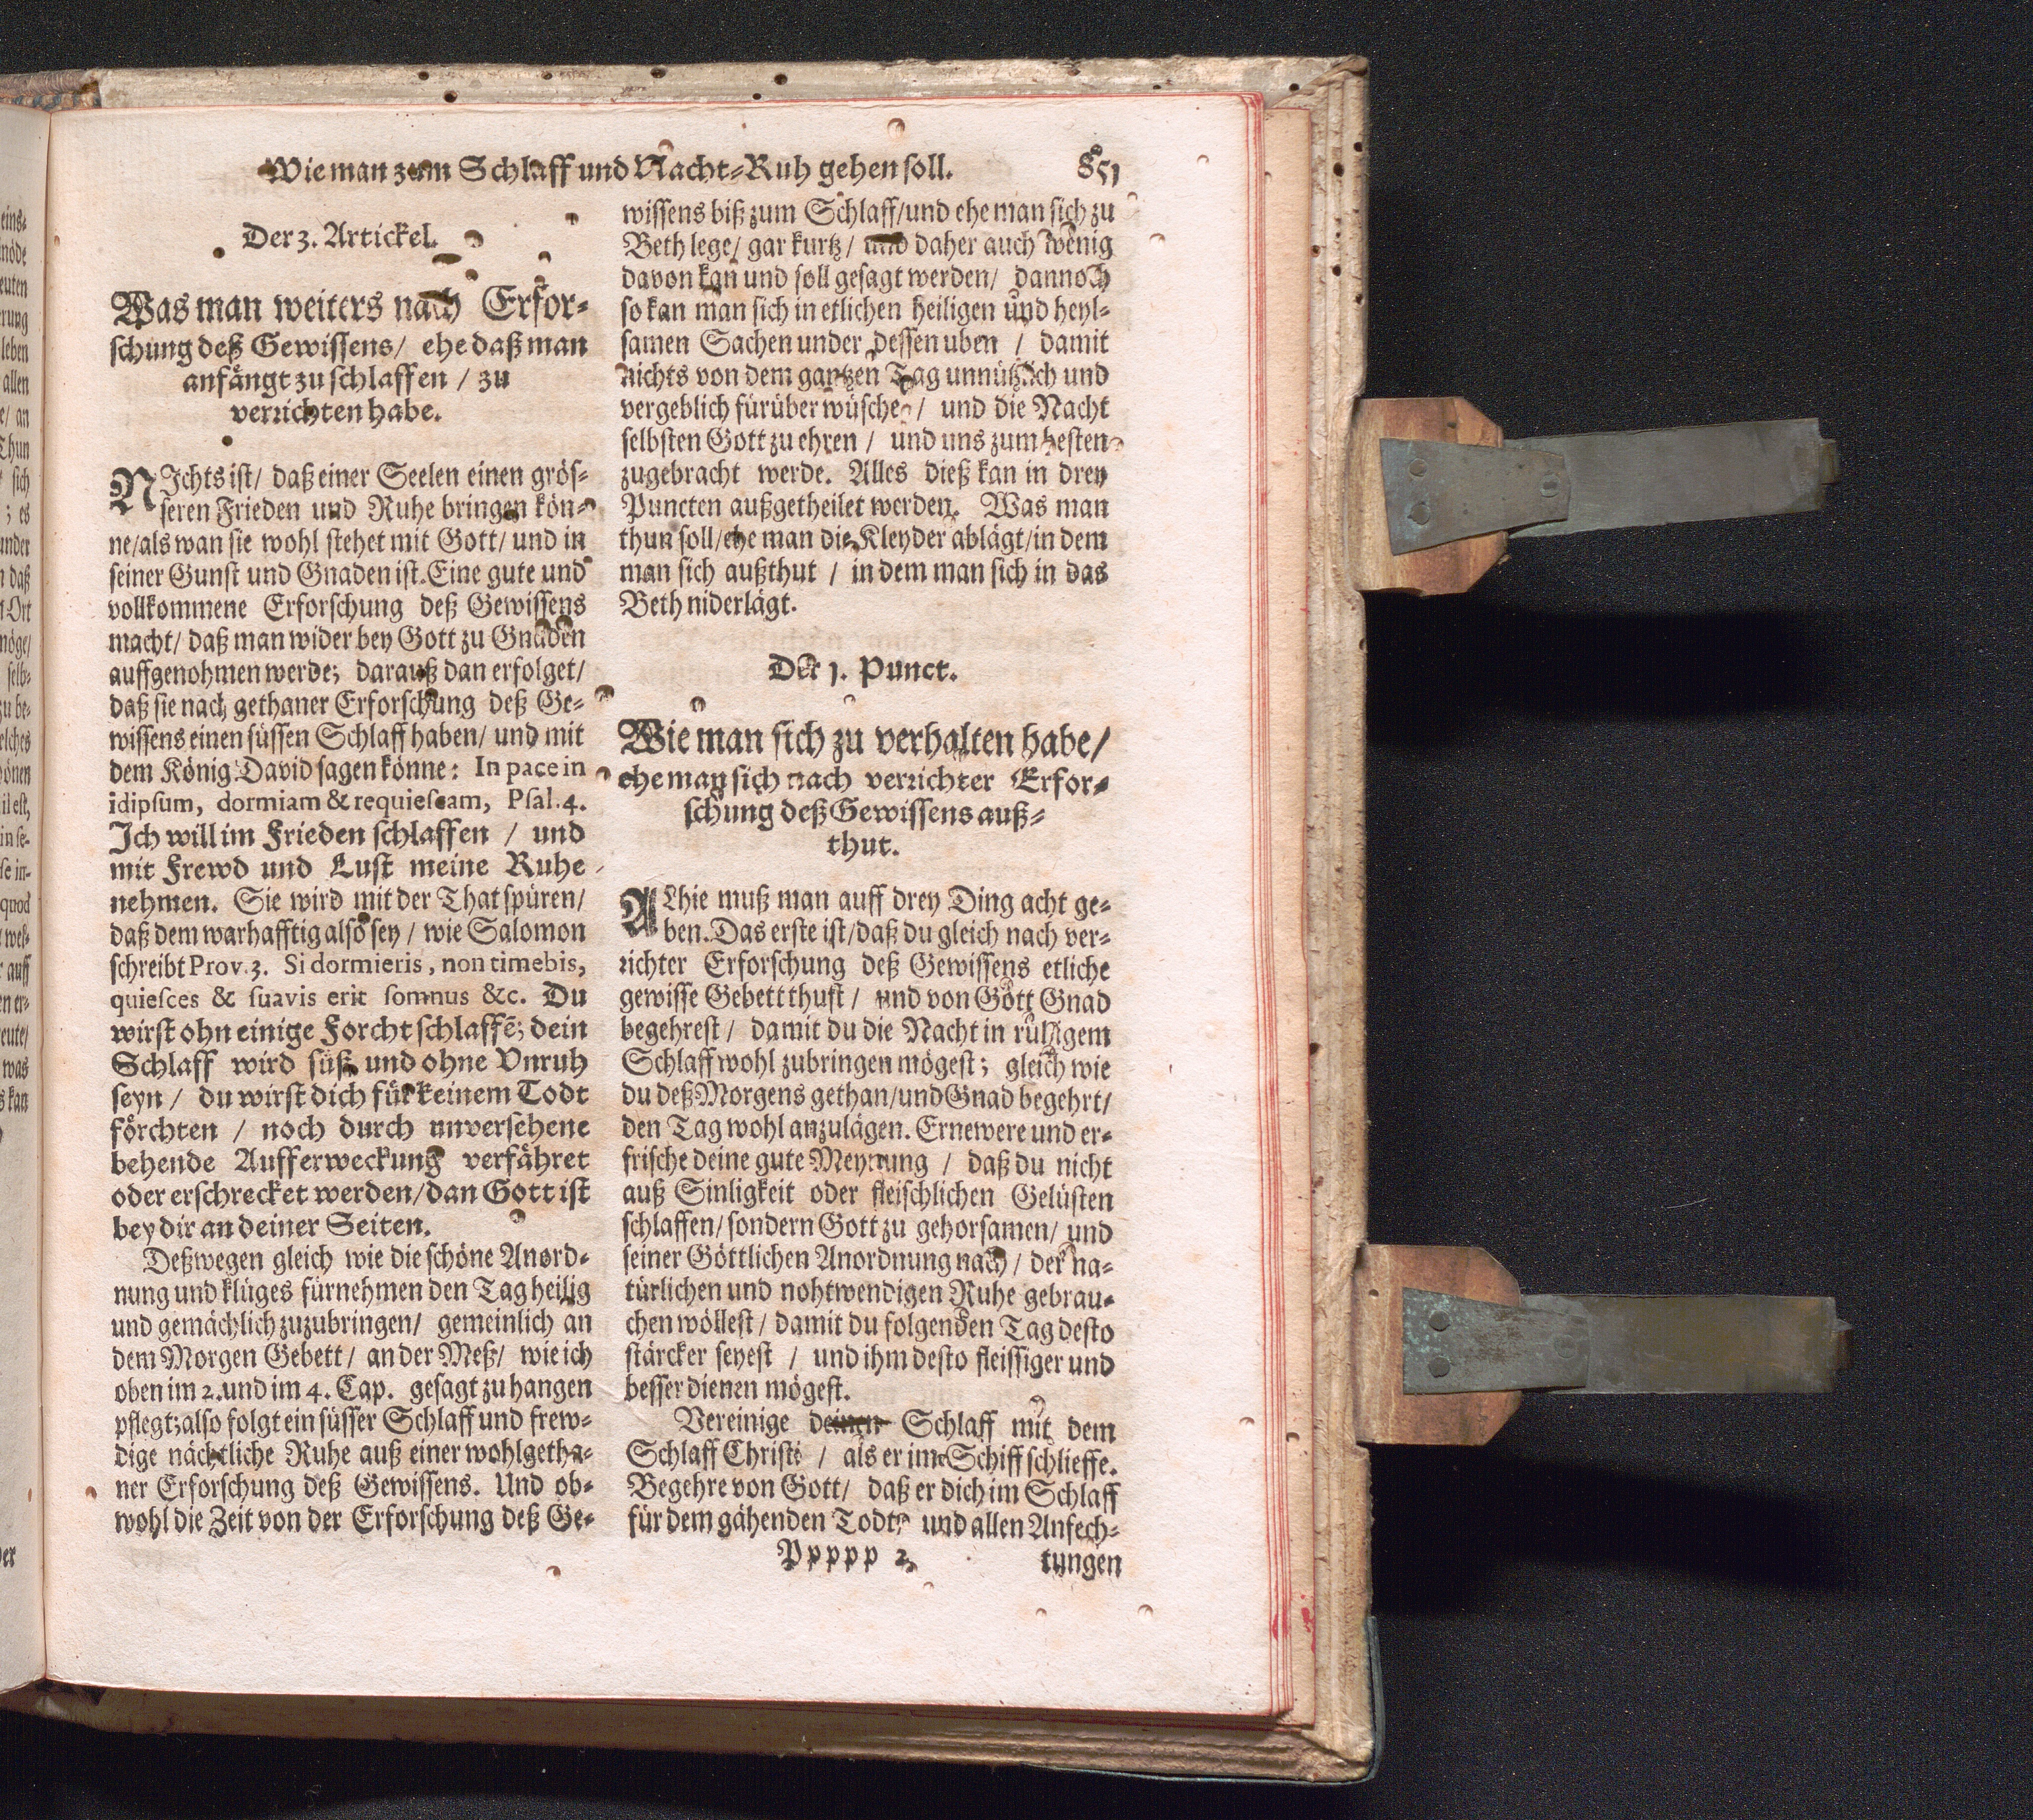 Wie man zum Schlaff und Nacht-Ruh gehen soll. 851
Der 3. Artickel.
Was man weiters nach Erfor-
schung deß Gewissens / ehe daß man
anfängt zu schlaffen / zu
verrichten habe.
NIchts ist / daß einer Seelen einen grös-
seren Frieden und Ruhe bringen kön-
ne/als wan sie wohl stehet mit Gott/ und in
seiner Gunst und Gnaden ist. Eine gute und
vollkommene Erforschung deß Gewissens
macht/ daß man wider bey Gott zu Gnaden
auffgenohmen werde; darauß dan erfolget/
daß sie nach gethaner Erforschung deß Ge-
wissens einen süssen Schlaff haben/ und mit
dem König David sagen könne: In pace in
idipsum, dormiam & requiescam, Psal. 4.
Ich will im Frieden schlaffen / und
mit Frewd und Lust meine Ruhe
nehmen. Sie wird mit der That spüren/
daß dem warhafftig also sey / wie Salomon
schreibt Prov. 3. Si dormieris, non timebis,
quiesces & suavis erit somnus &c. Du
wirst ohn einige Forcht schlaffē; dein
Schlaff wird süß und ohne Vnruh
seyn / du wirst dich für keinem Todt
förchten / noch durch unversehene
behende Aufferweckung verfähret
oder erschrecket werden/dan Gott ist
bey dir an deiner Seiten.
Deßwegen gleich wie die schöne Anord-
nung und kluges fürnehmen den Tag heilig
und gemächlich zuzubringen/ gemeinlich an
dem Morgen Gebett/ an der Meß/ wie ich
oben im 2. und im 4. Cap. gesagt zu hangen
pflegt; also folgt ein süsser Schlaff und frew-
dige nächtliche Ruhe auß einer wohlgetha-
ner Erforschung deß Gewissens. Und ob-
wohl die Zeit von der Erforschung deß Ge-
wissens biß zum Schlaff/und ehe man sich zu
Beth lege/ gar kurtz/ und daher auch wenig
davon kan und soll gesagt werden/ dannoch
so kan man sich in etlichen heiligen und heyl-
samen Sachen under dessen uben / damit
nichts von dem gantzen Tag unnützlich und
vergeblich fürüber wüsche / und die Nacht
selbsten Gott zu ehren / und uns zum besten
zugebracht werde. Alles dieß kan in drey
Puncten außgetheilet werden. Was man
thun soll/ehe man die Kleyder ablägt/in dem
man sich außthut / in dem man sich in das
Beth niderlägt.
Der 1. Punct.
Wie man sich zu verhalten habe/
ehe man sich nach verrichter Erfor-
schung deß Gewissens auß-
thut.
ALhie muß man auff drey Ding acht ge-
ben. Das erste ist/daß du gleich nach ver-
richter Erforschung deß Gewissens etliche
gewisse Gebett thust / und von Gott Gnad
begehrest / damit du die Nacht in ruhigem
Schlaff wohl zubringen mögest; gleich wie
du deß Morgens gethan/und Gnad begehrt/
den Tag wohl anzulägen. Ernewere und er-
frische deine gute Meynung / daß du nicht
auß Sinligkeit oder fleischlichen Gelüsten
schlaffen/sondern Gott zu gehorsamen/ und
seiner Göttlichen Anordnung nach / der na-
türlichen und nohtwendigen Ruhe gebrau-
chen wöllest / damit du folgenden Tag desto
stärcker seyest / und ihm desto fleissiger und
besser dienen mögest.
Vereinige deinen Schlaff mit dem
Schlaff Christi / als er im Schiff schlieffe.
Begehre von Gott/ daß er dich im Schlaff
für dem gähenden Todt und allen Anfech-
Ppppp 2 tungen